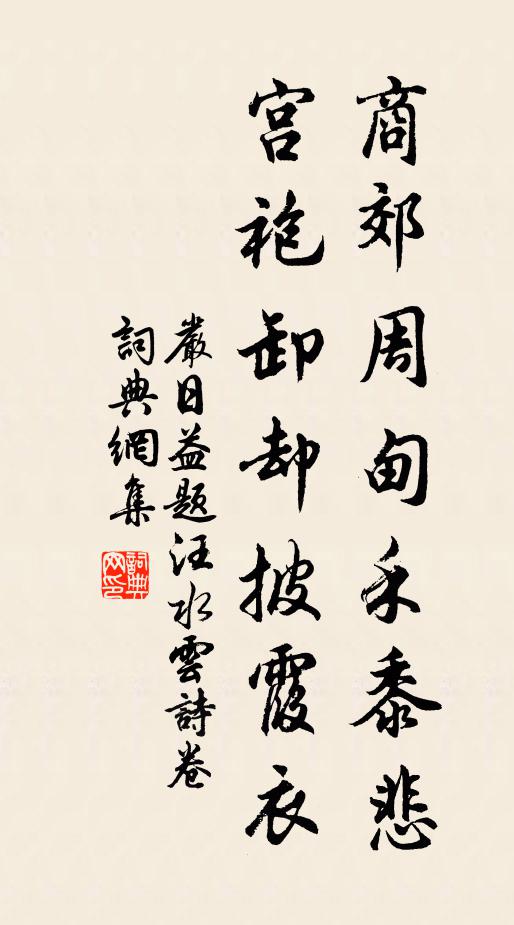 商郊周甸禾黍悲
宮袍卸却披霞衣
嚴日益題汪水雲詩卷
詞典網集
詞典
网印